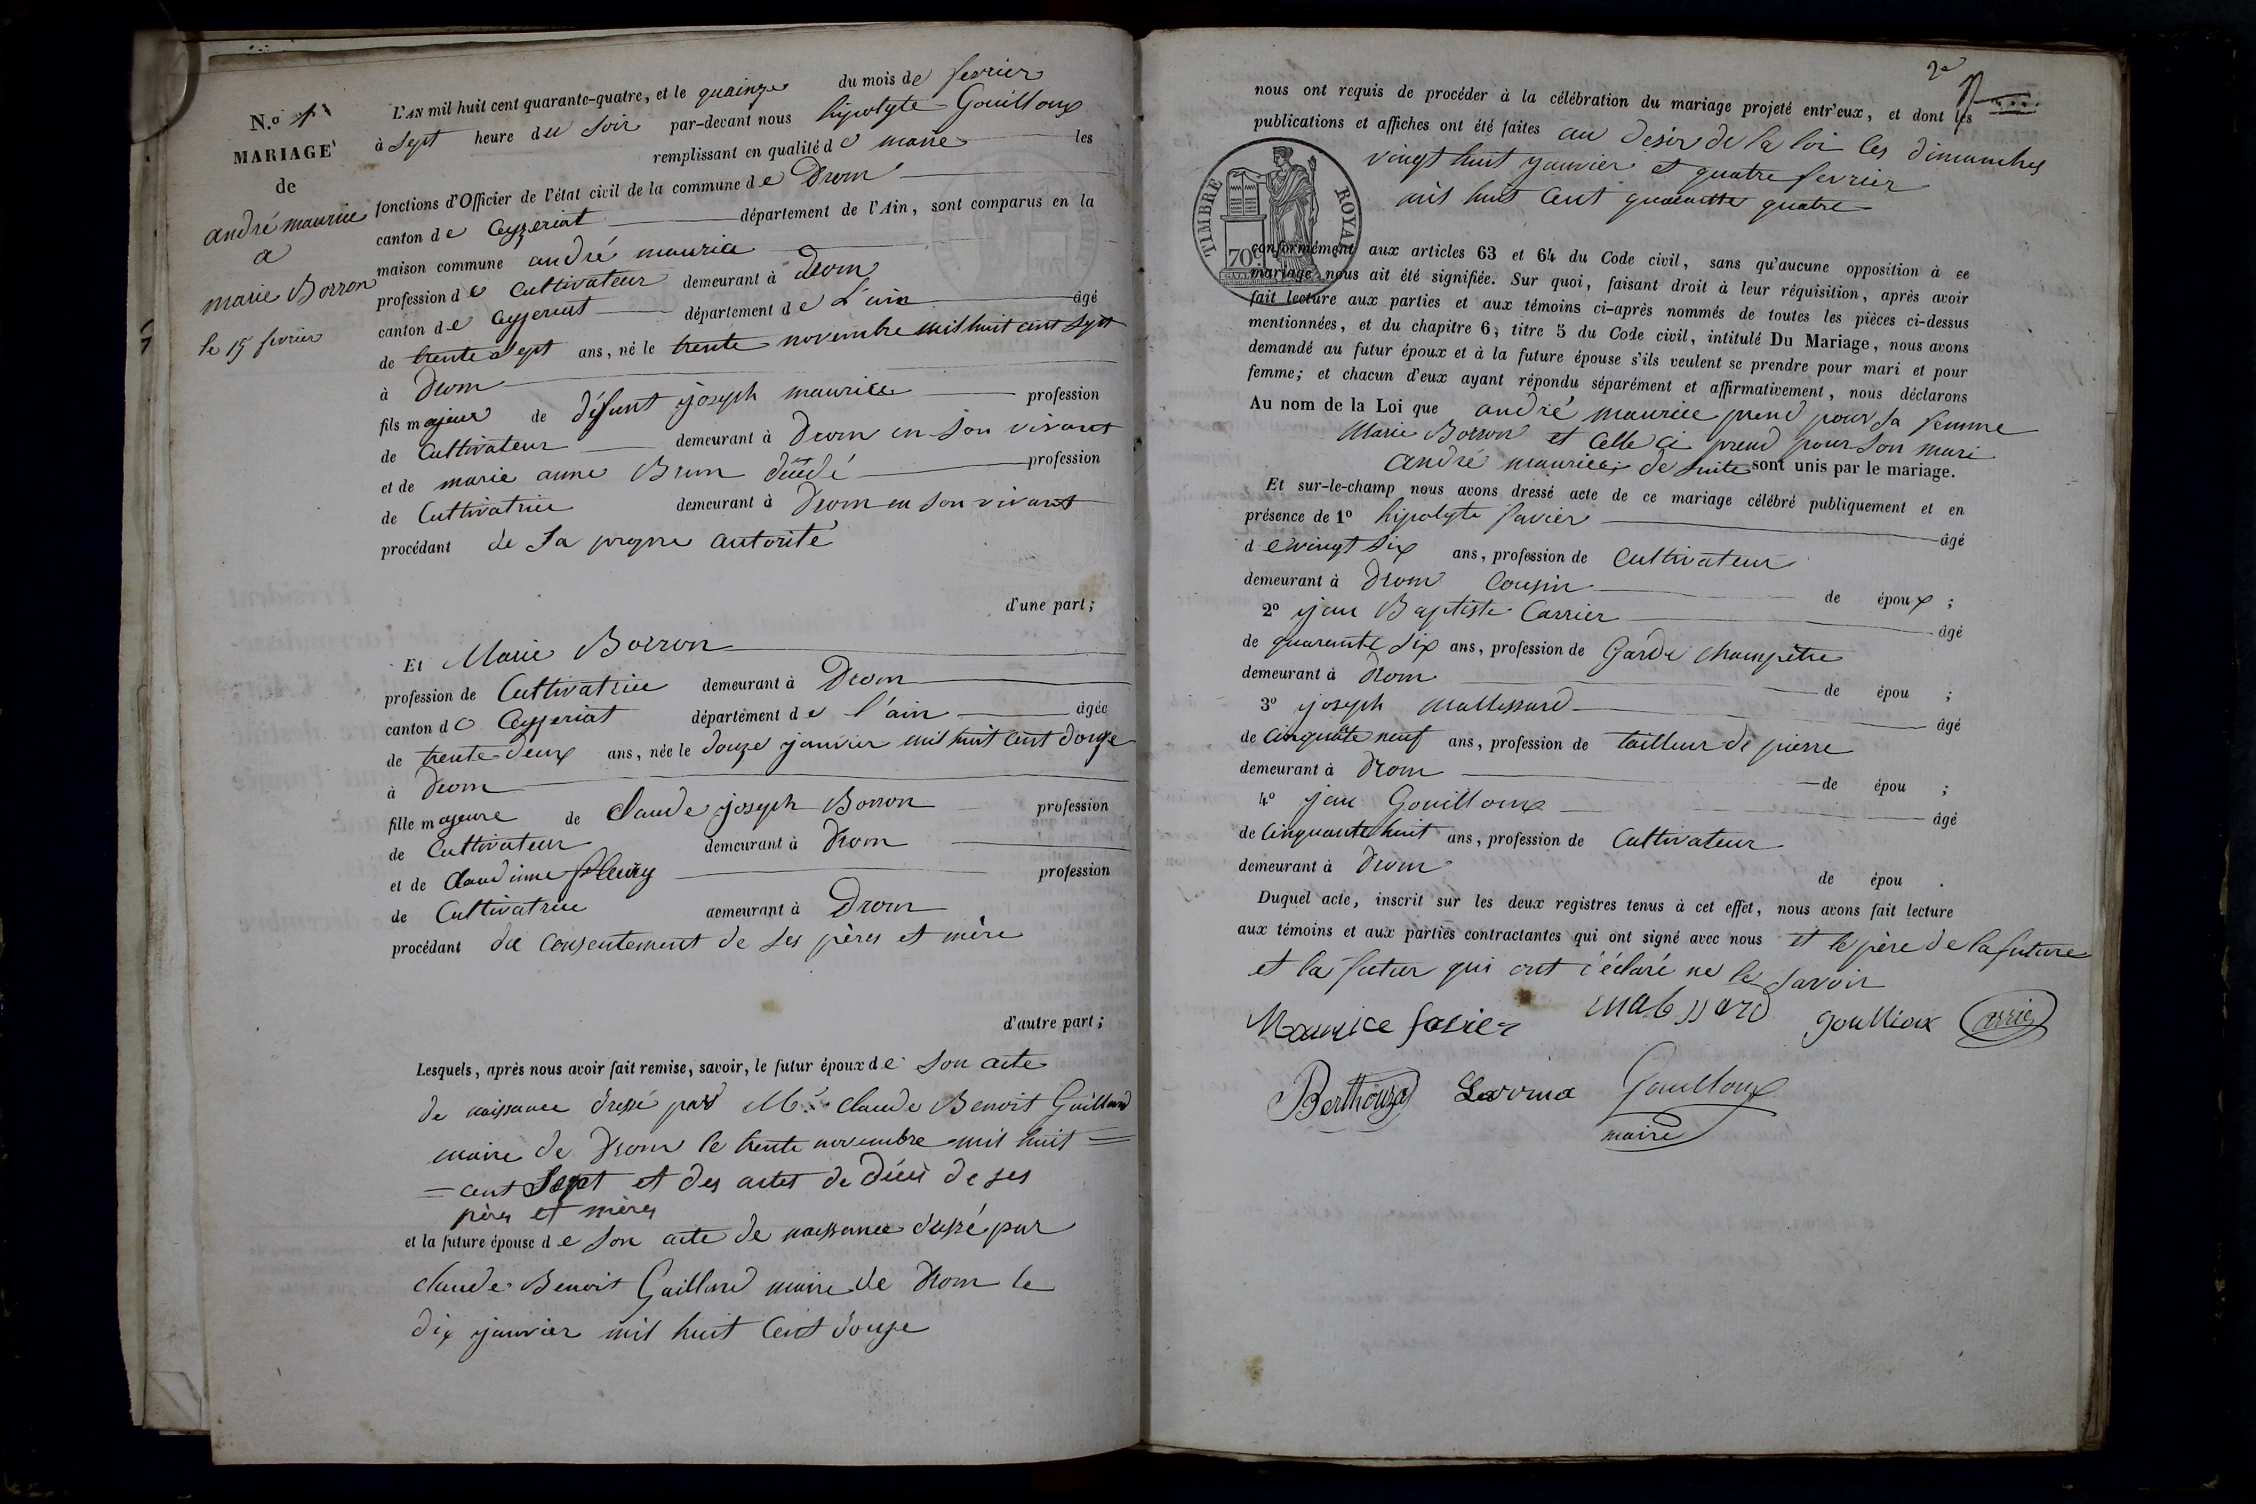 N.º 1
MARIAGE
de
andré maurice
a
marie Borron
le 15 fevrier
L'AN mil huit cent quarante-quatre, et le quainze du mois de fevrier
à sept heure du soir par-devant nous hipolyte Gouilloux
remplissant en qualité de maire les
fonctions d'Officier de l'état civil de la commune de Drom
canton de Ceyzeriat département de l'Ain, sont comparus en la
maison commune andré maurice
profession de Cultivateur demeurant à Drom
canton de Ceyzeriat département de L'ain âgé
de trente sept ans, né le trente novembre mil huit cent sept
à Drom
fils majeur de défunt joseph maurice profession
de Cultivateur demeurant à Drom en son vivant
et de marie anne Brun profession
de Cultivatrice demeurant à Drom en son vivant
procédant de sa propre autorité
d'une part;
Et Marie Borron
profession de Cultivatrice demeurant à Drom
canton de Ceyzeriat département de l'ain âgée
de trente deux ans, née le douze janvier mil huit cent douze
à Drom
fille majeure de Claude joseph Borron profession
de Cultivateur demeurant à Drom
et de Claudinne profession
de Cultivatrice demeurant à Drom
procédant du consentement de ses pères et mère
d'autre part;
Lesquels, après nous avoir fait remise, savoir, le futur époux de son acte
de naissance dressé par Mr Claude Benoit Guillard
maire de Drom le trente novembre mil huit =
= cent Sept et des actes de décès de ses
pères et mères
et la future épouse de son acte de naissance dressé par
claude Benoit Gaillard maire de Drom le
dix janvier mil huit cent douze
2e
nous ont requis de procéder à la célébration du mariage projeté entr'eux, et dont les
publications et affiches ont été faites au desir de la loi les dimanches
vingt huit janvier et quatre fevrier
mil huit cent quarante quatre
TIMBRE ROYAL
70c
conformément aux articles 63 et 64 du Code civil, sans qu'aucune opposition à ce
mariage nous ait été signifiée. Sur quoi, faisant droit à leur réquisition, après avoir
fait lecture aux parties et aux témoins ci-après nommés de toutes les pièces ci-dessus
mentionnées, et du chapitre 6, titre 5 du Code civil, intitulé Du Mariage, nous avons
demandé au futur époux et à la future épouse s'ils veulent se prendre pour mari et pour
femme; et chacun d'eux ayant répondu séparément et affirmativement, nous déclarons
Au nom de la Loi que andré maurice prend pour sa femme
Marie Borron et celle ci prend pour son mari
andré maurice; de suite sont unis par le mariage.
Et sur-le-champ nous avons dressé acte de ce mariage célébré publiquement et en
présence de 1º hipolyte favier âgé
de vingt six ans, profession de Cultivateur
demeurant à Drom Cousin de époux;
2º jean Baptiste Carrier âgé
de quarante six ans, profession de Garde champêtre
demeurant à Drom de épou ;
3º joseph âgé
de cinquãte neuf ans, profession de tailleur de pierre
demeurant à Drom de épou ;
4º jean Gouilloux âgé
de Cinquante huit ans, profession de Cultivateur
demeurant à Drom de épou .
Duquel acte, inscrit sur les deux registres tenus à cet effet, nous avons fait lecture
aux témoins et aux parties contractantes qui ont signé avec nous et le père de la future
et la futur qui ont déclaré ne le savoir
Maurice favier Carrie
Gouilloux
maire